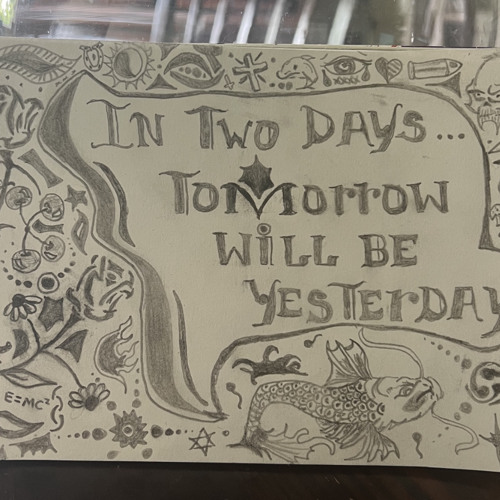 In Two Days...
Tomorrow
Will Be
Yesterday
E=MC²